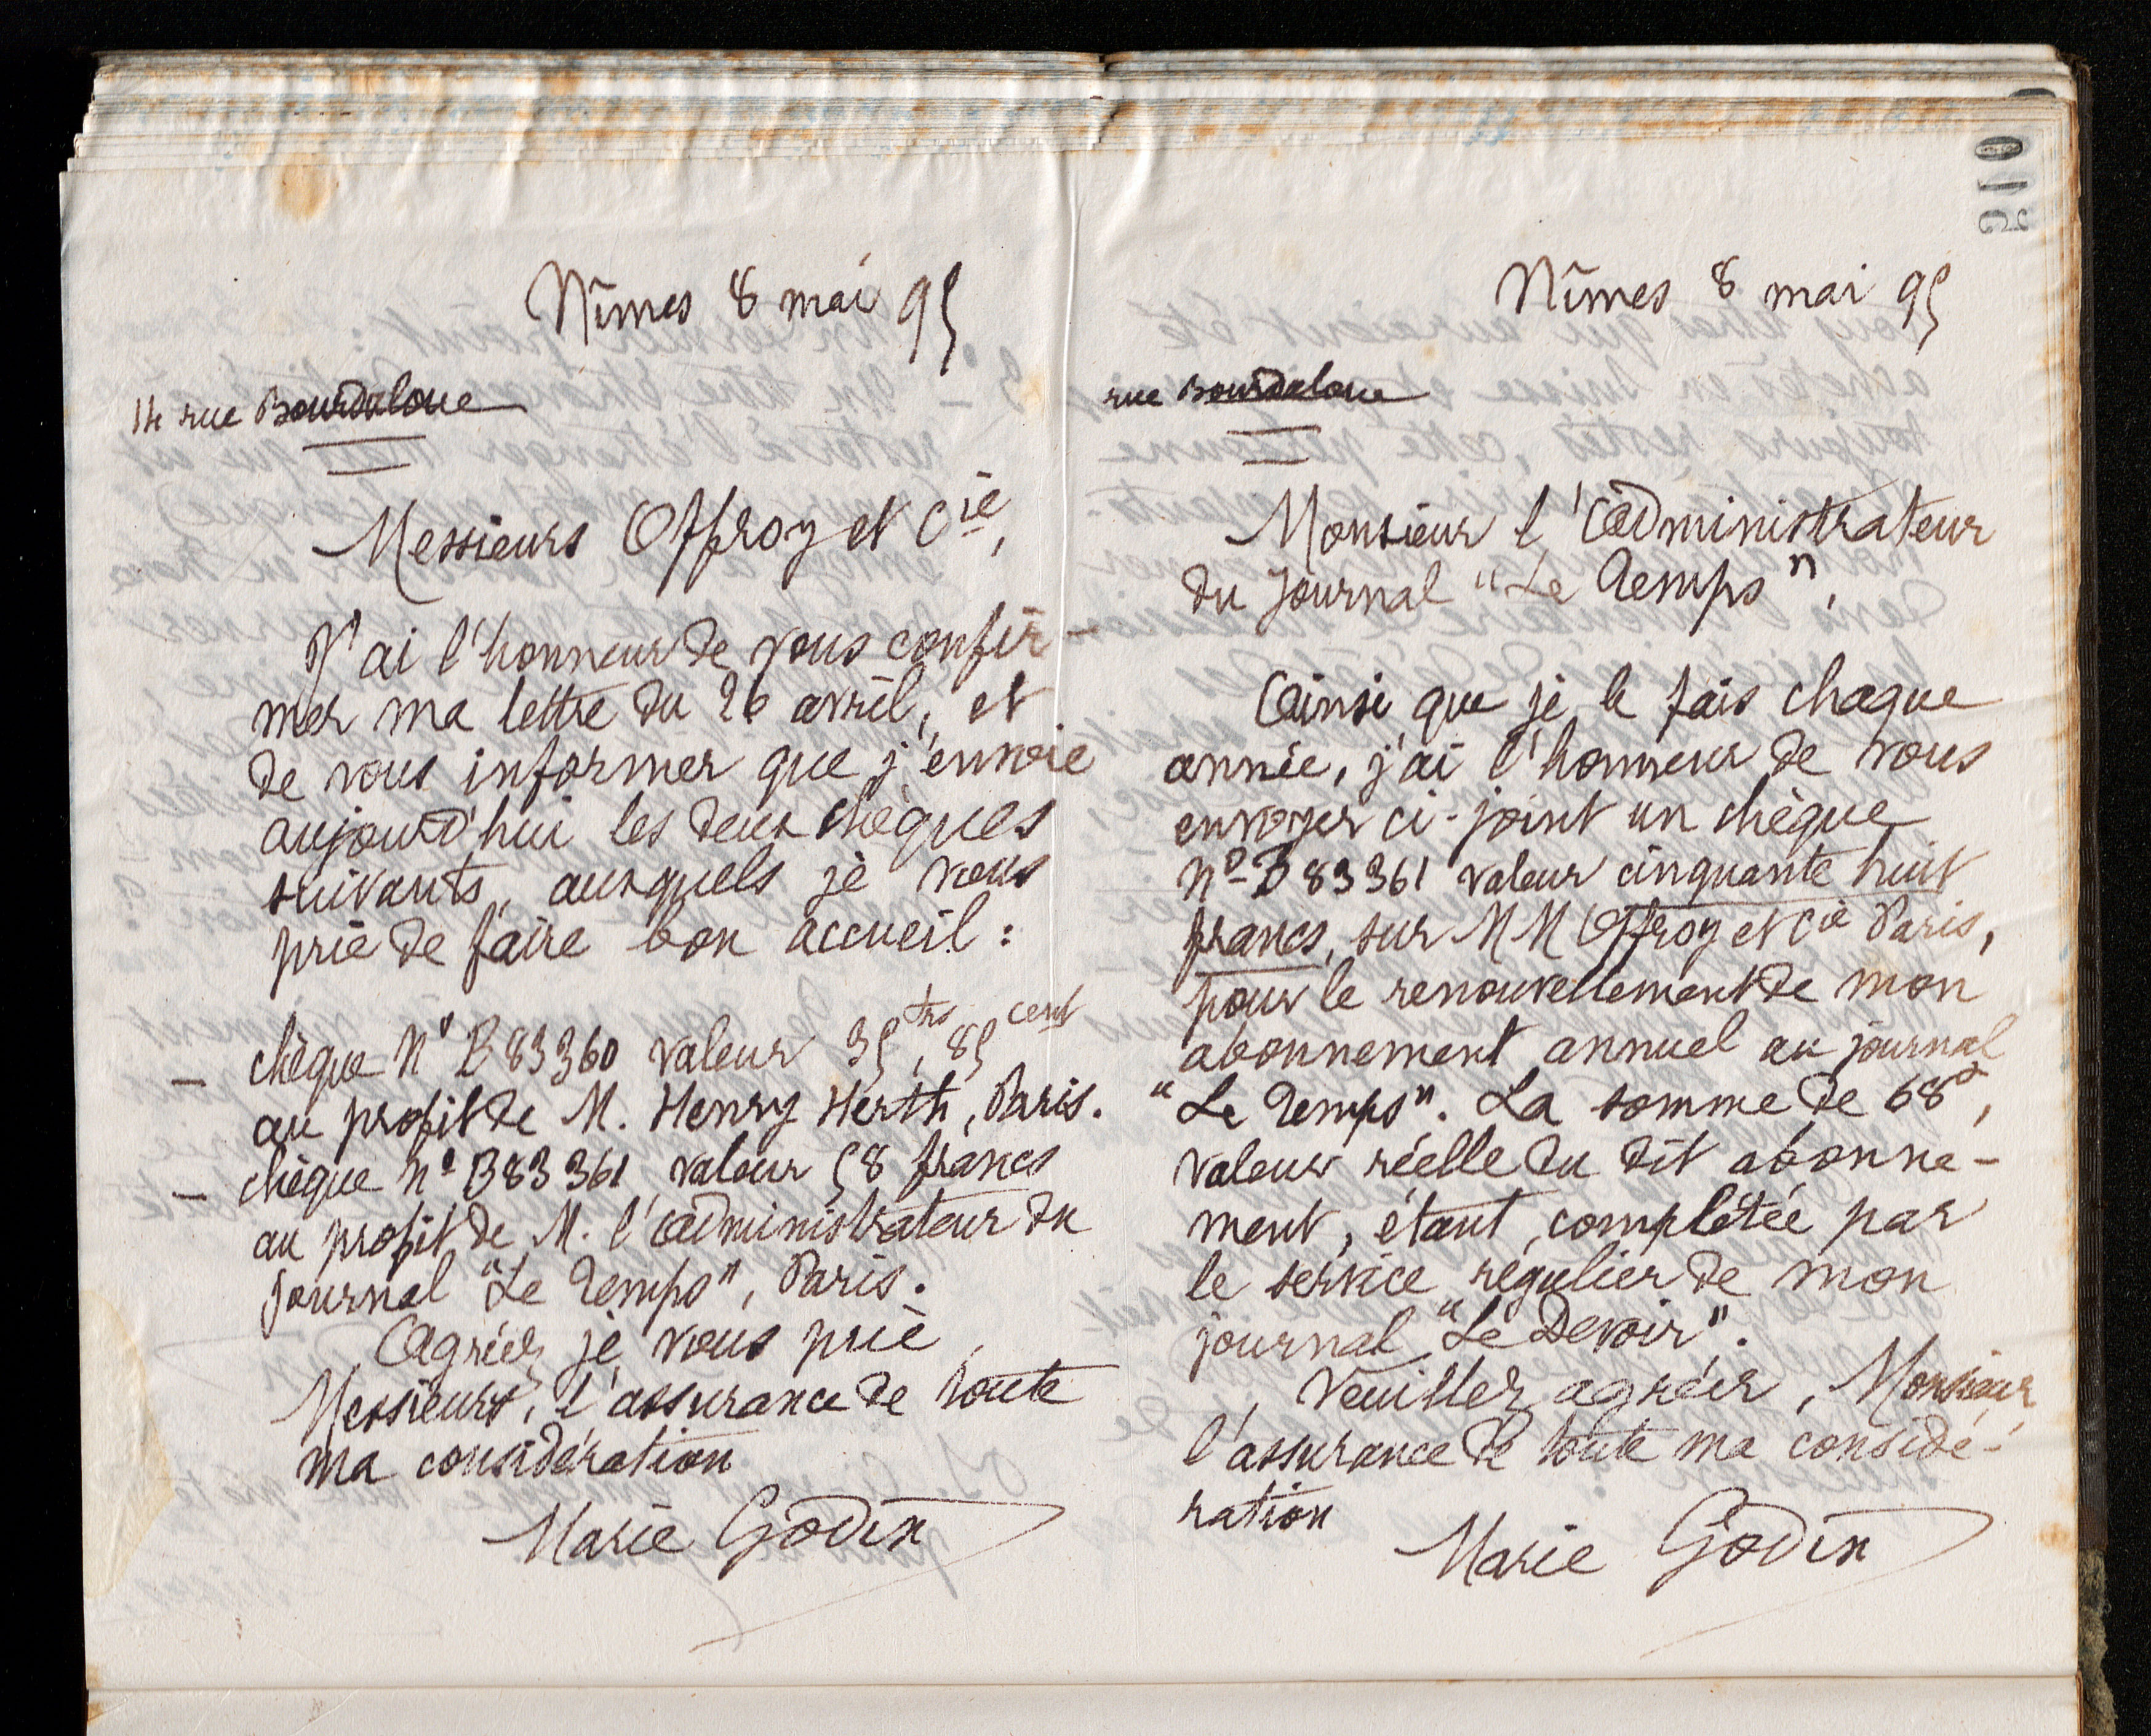 Nîmes 8 mai 95
14 rue Bourdaloue
Messieurs Offroy et Cie,
J'ai l'honneur de vous confir-
mer ma lettre du 26 avril, et
de vous informer que j'envoie
aujourd'hui les deux chèques
suivants, auxquels je vous
prie de faire bon accueil :
— chèque No B83360 valeur 35frs, 85cent
au profit de M. Henry Herth, Paris.
— chèque No B83361 valeur 58 francs
au profit de M. l'administrateur du
journal "Le Temps", Paris.
Agréez je vous prie,
Messieurs, l'assurance de toute
ma considération
Marie Godin
015
Nîmes 8 mai 95
rue Bourdaloue
Monsieur l'administrateur
du journal "Le Temps",
Ainsi que je le fais chaque
année, j'ai l'honneur de vous
envoyer ci-joint un chèque
No B83361 valeur cinquante huit
francs, sur MM Offroy et Cie Paris,
pour le renouvellement de mon
abonnement annuel au journal
"Le Temps". La somme de 68f,
valeur réelle du dit abonne-
ment, étant complétée par
le service régulier de mon
journal "Le Devoir".
Veuillez agréer, Monsieur,
l'assurance de toute ma considé-
ration
Marie Godin